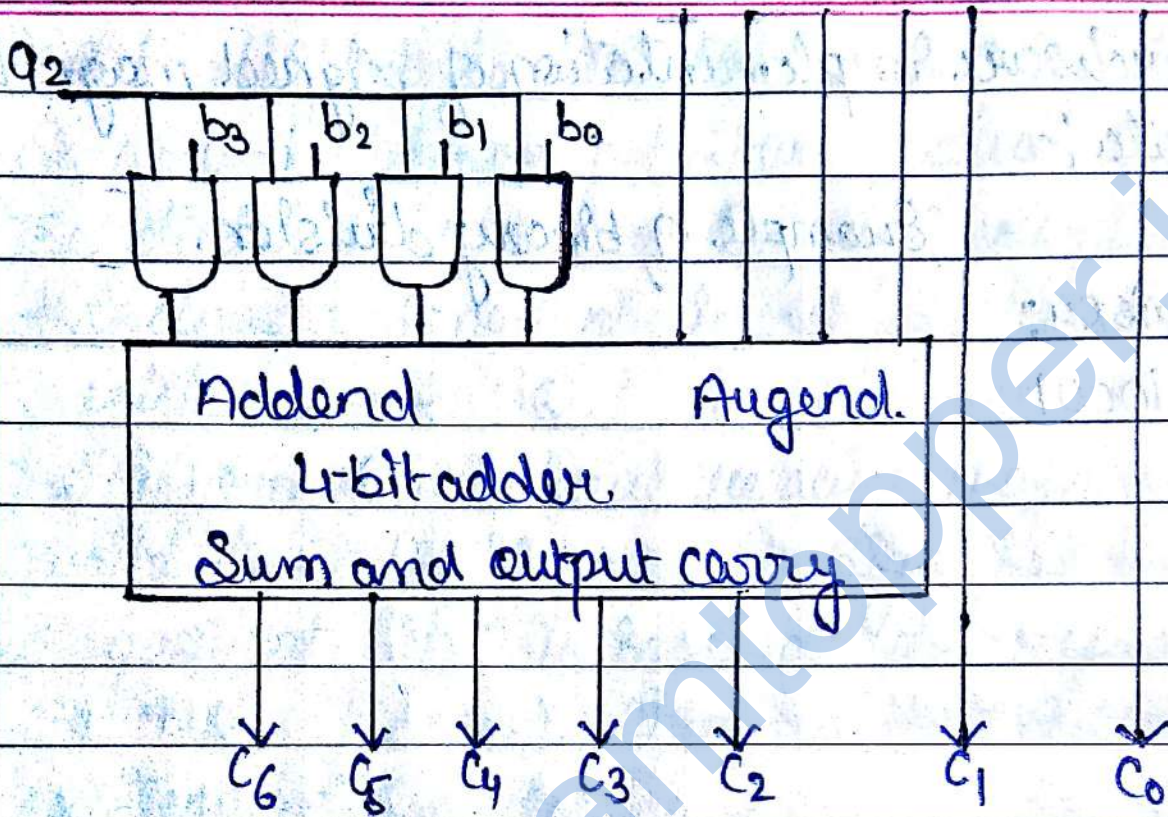 a2
b3 b2 b1 b0
Addend Augend.
4-bit adder
Sum and output carry
C6 C5 C4 C3 C2 C1 C0